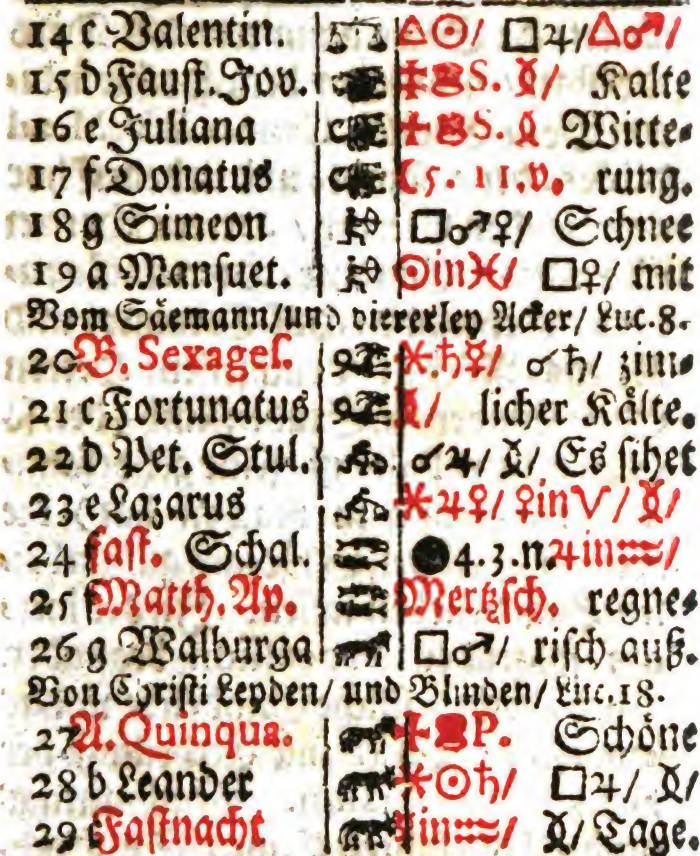 14 c Valentin. △☉/ □♃/△♂/
15 d Fauſt. Jov. S. / Kalte
16 e Juliana S. Witte⸗
17 f Donatus ☾5. 11.v. rung.
18 g Simeon □♂♀/ Schnee
19 a Manſuet. ☉in♓/ □♀/ mit
Vom Säemann/und viererley Acker/ Luc.8.
20 B. Sexageſ. ⚹♄☿/ ☌♄/ zim⸗
21 c Fortunatus / licher Kälte.
22 d Pet. Stul. ☌♃/ / Es ſihet
23 e Lazarus ⚹♃♀/ ♀in♈/ /
24 faſt. Schal. ●4.3.n.♃in♒/
25 f Matth. Ap. Mertzſch. regne⸗
26 g Walburga □♂/ riſch auß.
Von Chriſti Leyden/ und Blinden/ Luc.18.
27 A. Quinqua. P. Schöne
28 b Leander ⚹☉♄/ □♃/ /
29 c Faſtnacht in♒/ / Tage.